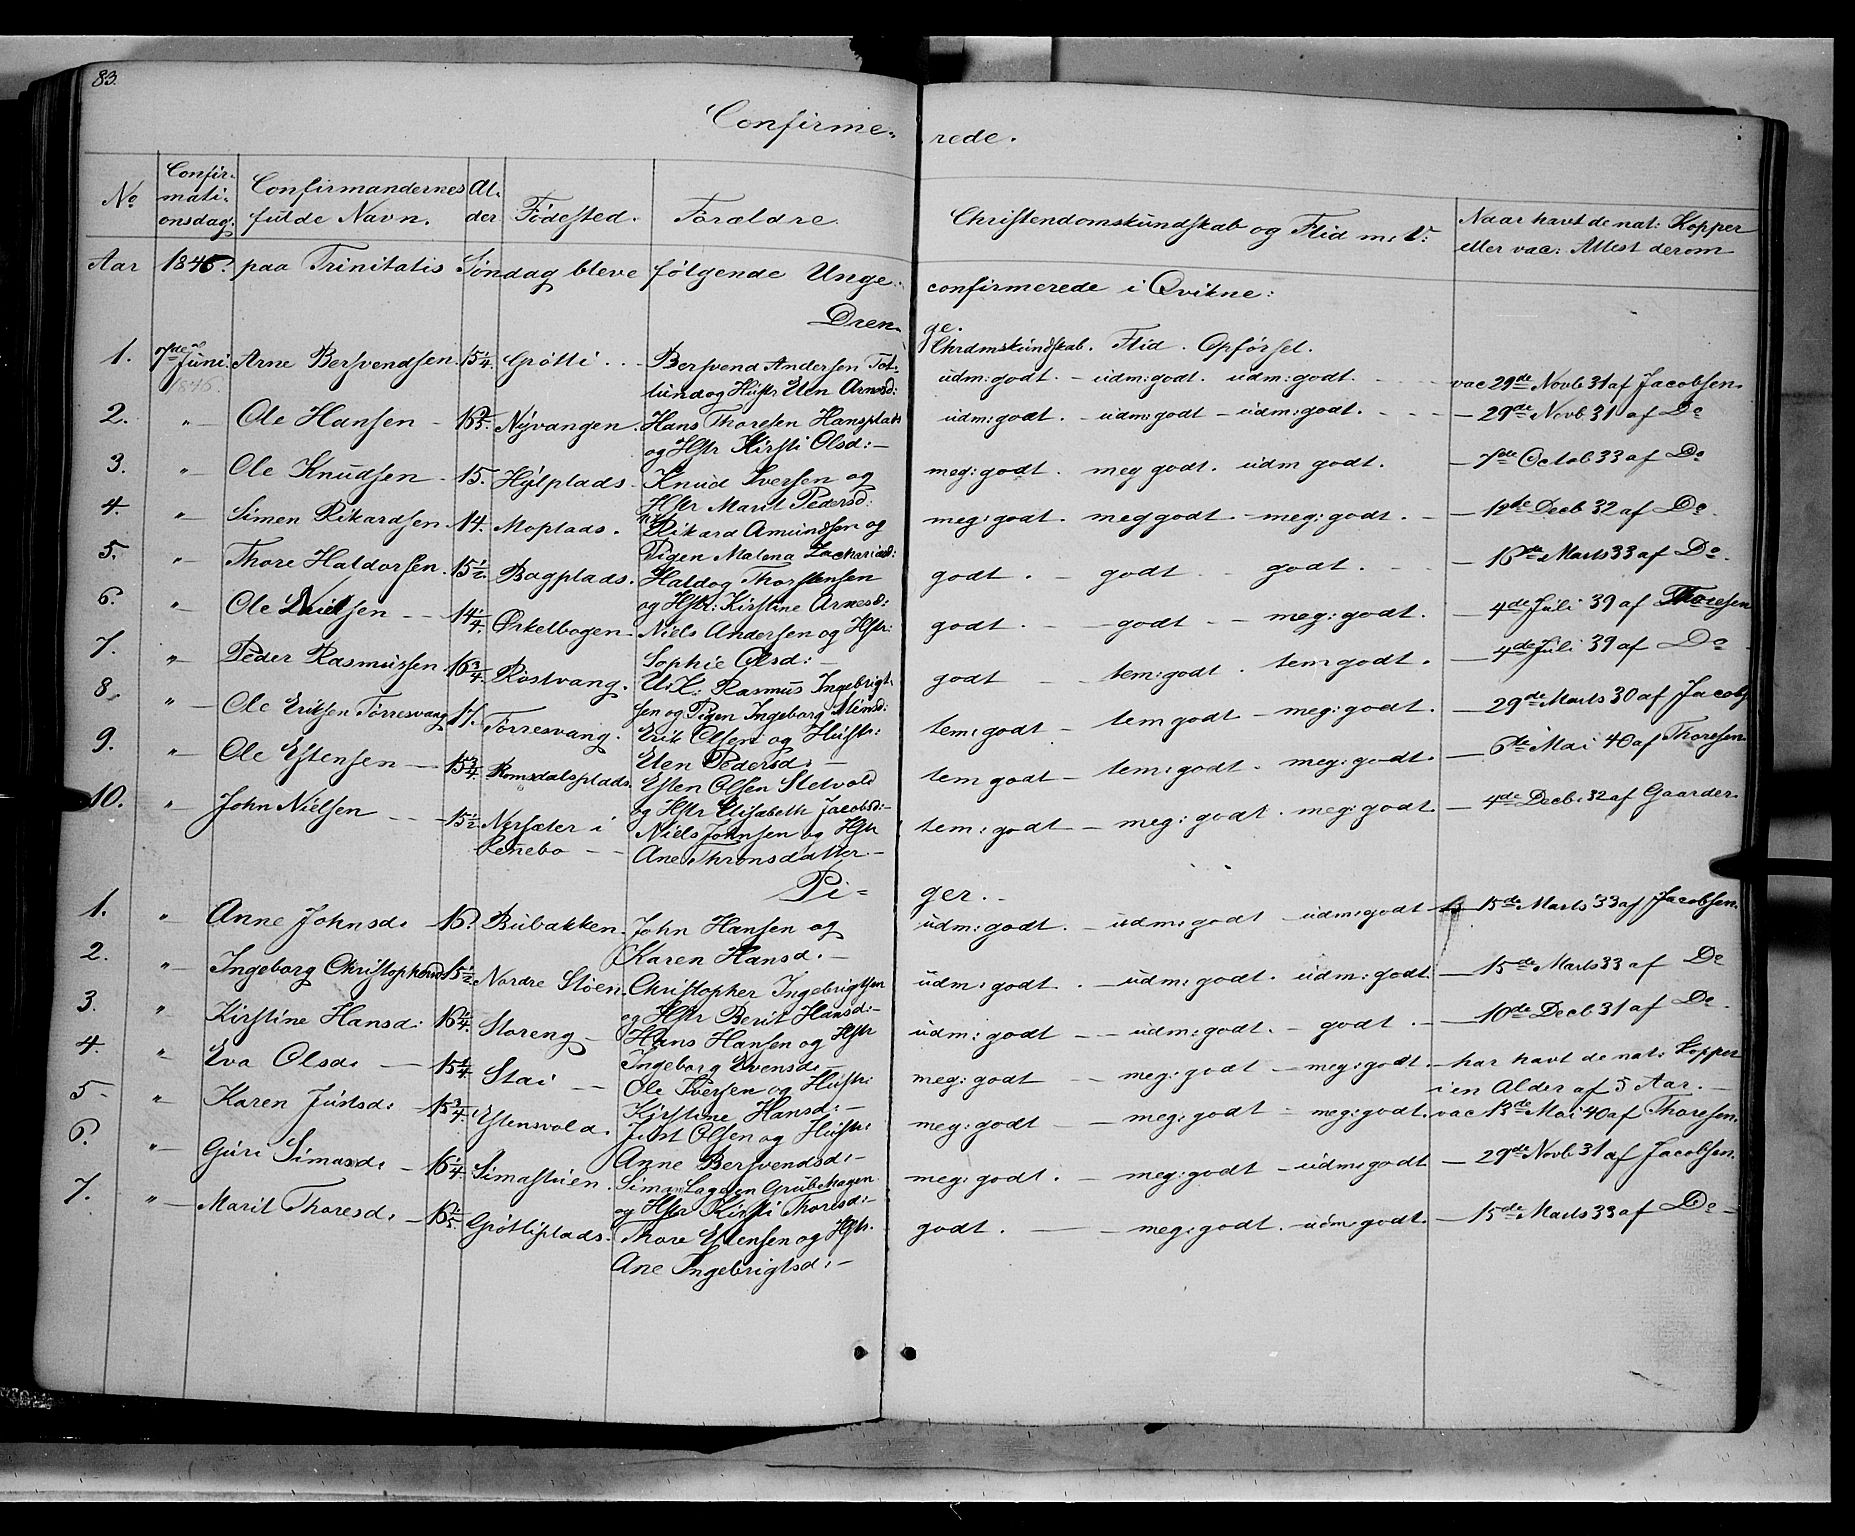 83.
Confirme- rede.
No Confirmationsdag: Confirmandernes fulde Navn. Alder Fødested. Forældre. Christendomskundskab og Flid m: V: Naar havt de nat: Kopper eller vac: Attest derom
Aar 1846. paa Trinitatis Søndag bleve følgende Unge: confirmerede i Qvikne:
Dren- ge.
Chrdmskundskab. Flid. Opførsel.
1. 7de Juni. Arne Bersvendsen. 15 1/4. Grøtli. Bersvend Andersen udm: godt. - udm: godt. udm: godt. vac 29de Novb 31 af Jacobsen.
1846. og Hustr Elen Arnesd:
2. " Ole Hansen - Nyvangen. Hans Thoresen Hansplads udm: godt. - udm: godt - udm: godt. - 29de Novb 31 af Do
og Hstr Kirsti Olsd: -
3. " Ole Knudsen. 15. Hylplads. Knud Iversen og meg: godt. meg godt. udm godt. - 7de Octob 33 af Do
Hstr Marit Pedersd:
4. " Simen Rikardsen. 14. Moplads. Rikard Amundsen og meg: godt. meg godt - meg: godt. - 12te Decb 32 af Do.
Pigen Malena Zachariasd:
5. " Thore Haldorsen. 15 1/2. Bagplads. Haldog Thorstensen godt. - godt - godt. - 16de Marts 33 af Do.
og Hstr: Kirstine Arnesd:
6. " Ole Nielsen - 14 1/4. Ørkelbogen - Niels Andersen og Hstr: godt. - godt - meg: godt. - 4de Juli 39 af Thoresen
Sophie Olsd: -
7. " Peder Rasmussen. 16 3/4. Røstvang. U: K: Rasmus Ingebrigt- godt - tem: godt. tem: godt. - 4de Juli 39 af Do
sen og Pigen Ingeborg
8. " Ole Eriksen Torresvang. 17. Torresvang. Erik Olsen og Hustr: tem: godt - tem godt - meg: godt. - 29de Marts 30 af Jacobs
Elen Pedersd: -
9. " Ole Estensen - 15 3/4. Romsdalsplads. Esten Olsen Stetvold tem godt - tem: godt. meg: godt. - 6te Mai 40 af Thoresen.
og Hstr Elisabeth Jacobsd: -
10. " John Nielsen - 15 1/2 Nysæter i Niels Johnsen og Hstr tem: godt - meg: godt. meg: godt. - 4de Decb. 32 af Gaarder.
Renebo - Ane Thronsdatter. -
Pi- ger. -
1. " Anne Johnsd: 16. Bubakken. John Hansen og udm: godt. - udm: godt - udm: godt - 15de Marts 33 af Jacobsen.
Karen Hansd. -
2. " Ingeborg Christophersd: 15 1/2 Nordre Støen. Christopher Ingebrigtsen udm: godt. - udm: godt. udm: godt: - 15de Marts 33 af Do
og Hstr Berit Hansd: -
3. " Kirstine Hansd: 16 Storeng - Hans Hansen og Hstr udm: godt - udm: godt. - godt. - 10de Decb 31 af Do.
Ingeborg Evensd: -
4. " Eva Olsd: - 15 1/4 Stai - Ole Iversen og Hustr: meg: godt - meg: godt - meg: godt. - har havt de nat: Kopper
Kirstine Hansd: - i en Alder af 5 Aar. -
5 " Karen Justsd: - 15 3/4. Estensvold. Just Olsen og Hustr: meg: godt - meg: godt - meg: godt. vac 13de Mai 40 af Thoresen.
Anne Bersvendsd: -
6. " Guri Simasd: - 16 1/4. Simastuen. Siman Laggen Grubehagen meg: godt. - meg: godt - udm: godt - 29de Novb 31 af Jacobsen.
og Hstr Kirsti Thoresd: -
7. " Marit Thoresd: - Grøtliplads. Thore Estensen og Hstr. godt. - meg: godt. udm: godt. - 15de Marts 33 af Do -
Ane Ingebrigtsd: -